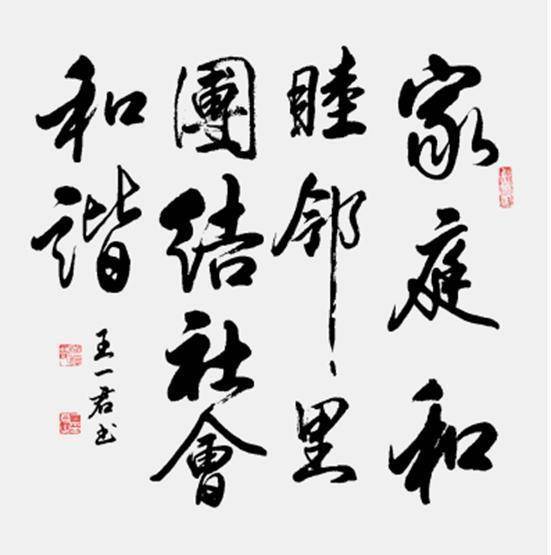 家庭和
睦邻里
團结社會
和谐
王一君书